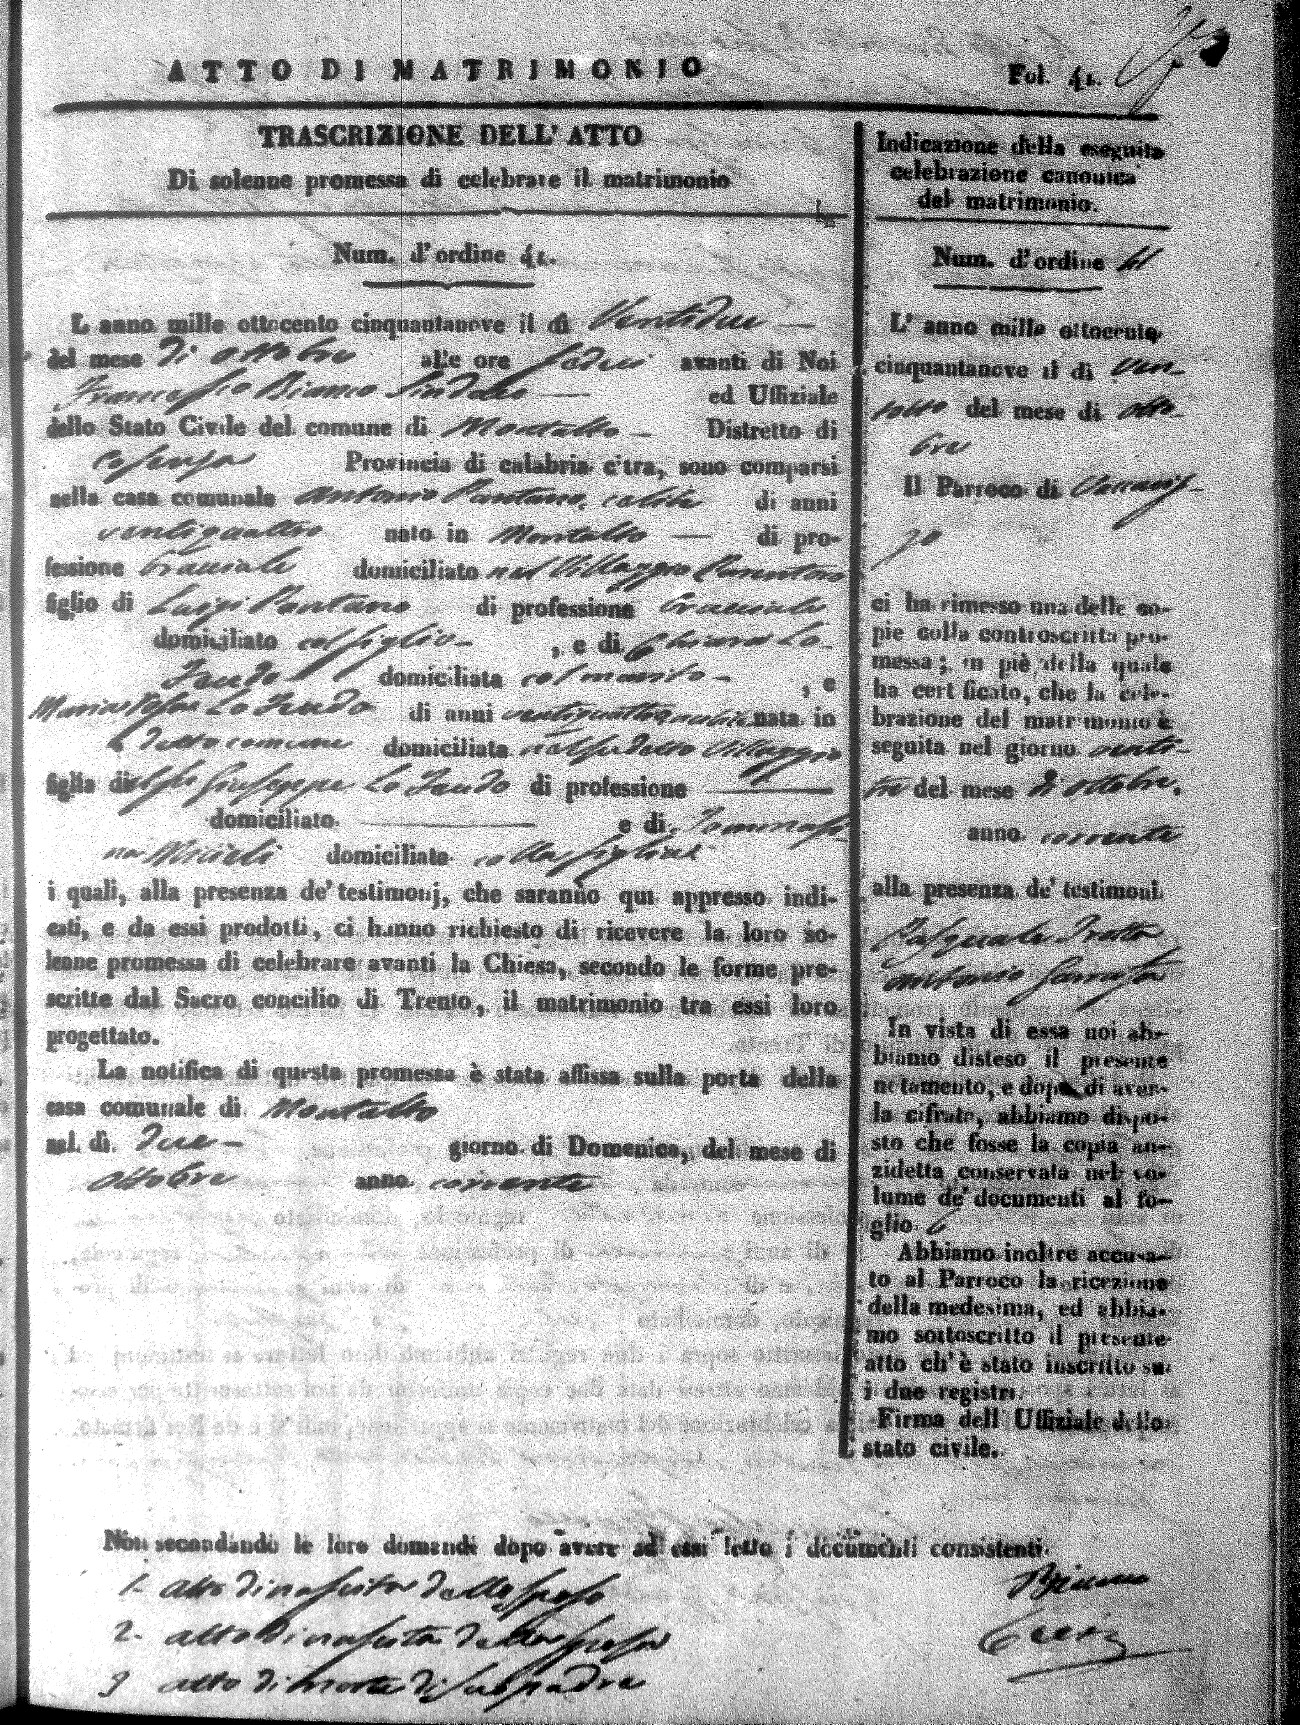 ATTO DI MATRIMONIO
Fol. 41.
TRASCRIZIONE DELL' ATTO
Di solenne promessa di celebrare il matrimonio
Num. d'ordine 41.
L anno mille ottocento cinquantanove il dì Ventidue
del mese di ottobre alle ore sedeci avanti di Noi
Francesco Bianco Sindaco ed Uffiziale
dello Stato Civile del comune di Montalto Distretto di
Cosenza Provincia di calabria citra, sono comparsi
nella casa comunale Antonio Pantano, celibe di anni
ventiquattro nato in Montalto di pro-
fessione bracciale domiciliato nel Villaggio Parantoro
figlio di Luigi Pantano di professione bracciale
domiciliato col figlio , e di Chiara Lo
Feudo domiciliata col marito , e
Maria Rosa Lo Feudo di anni ventiquattro nubile nata in
detto comune domiciliata nel detto Villaggio
figlia di Giuseppe Lo Feudo di professione
domiciliato e di Tommasi-
na Micieli domiciliata colla figlia
i quali, alla presenza de' testimonj, che saranno qui appresso indi-
cati, e da essi prodotti, ci hanno richiesto di ricevere la loro so-
lenne promessa di celebrare avanti la Chiesa, secondo le forme pre-
scritte dal Sacro concilio di Trento, il matrimonio tra essi loro
progettato.
La notifica di questa promessa è stata affissa sulla porta della
casa comunale di Montalto
nel dì Due giorno di Domenica, del mese di
ottobre anno corrente
Indicazione della eseguita
celebrazione canonica
del matrimonio.
Num. d'ordine 41
L' anno mille ottocento
cinquantanove il dì ven-
totto del mese di otto-
bre
Il Parroco di Vaccariz-
zo
ci ha rimesso una delle co-
pie colla controscritta pro-
messa; in piè della quale
ha cert ficato, che la cele-
brazione del matrimonio è
seguita nel giorno venti-
tre del mese di ottobre,
anno corrente
alla presenza de' testimoni.
Pasquale Tratto
Antonio
In vista di essa noi ab-
biamo disteso il presente
notamento, e dopo di aver-
la cifrata, abbiamo dispo-
sto che fosse la copia an-
zidetta conservata nel vo-
lume de' documenti al fo-
glio 6
Abbiamo inoltre accusa-
to al Parroco la ricezione
della medesima, ed abbia-
mo sottoscritto il presente
atto ch'è stato inscritto su
i due registri.
Firma dell Uffiziale dello
stato civile.
Noi secondando le loro domande dopo avere ad essi letto i documenti consistenti
1. atto di nascita dello sposo
2. atto di nascita della sposa
3 atto di morte di suo padre
Bianco